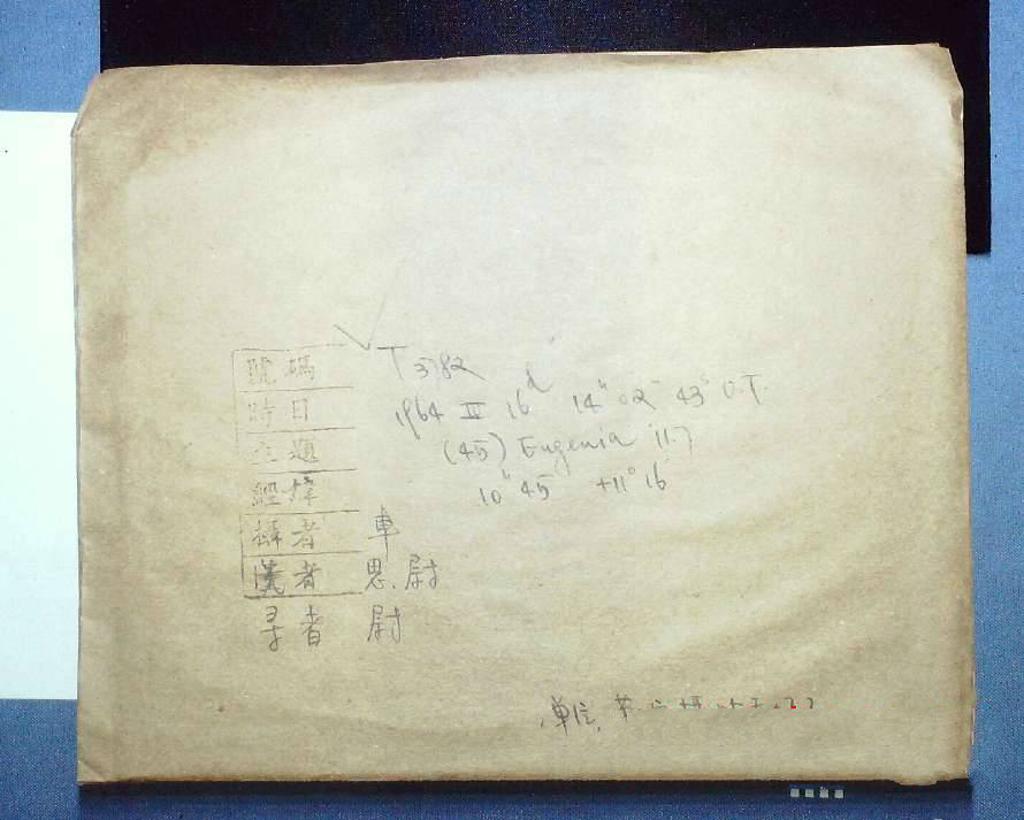 號碼 T 3782
時日 1964 III 16d 14h 02m 43s U.T.
主題 (45) Eugenia 11.7
經緯 10h 45 +11° 16
攝者 車
洗者 思.尉
尋者 尉
单位